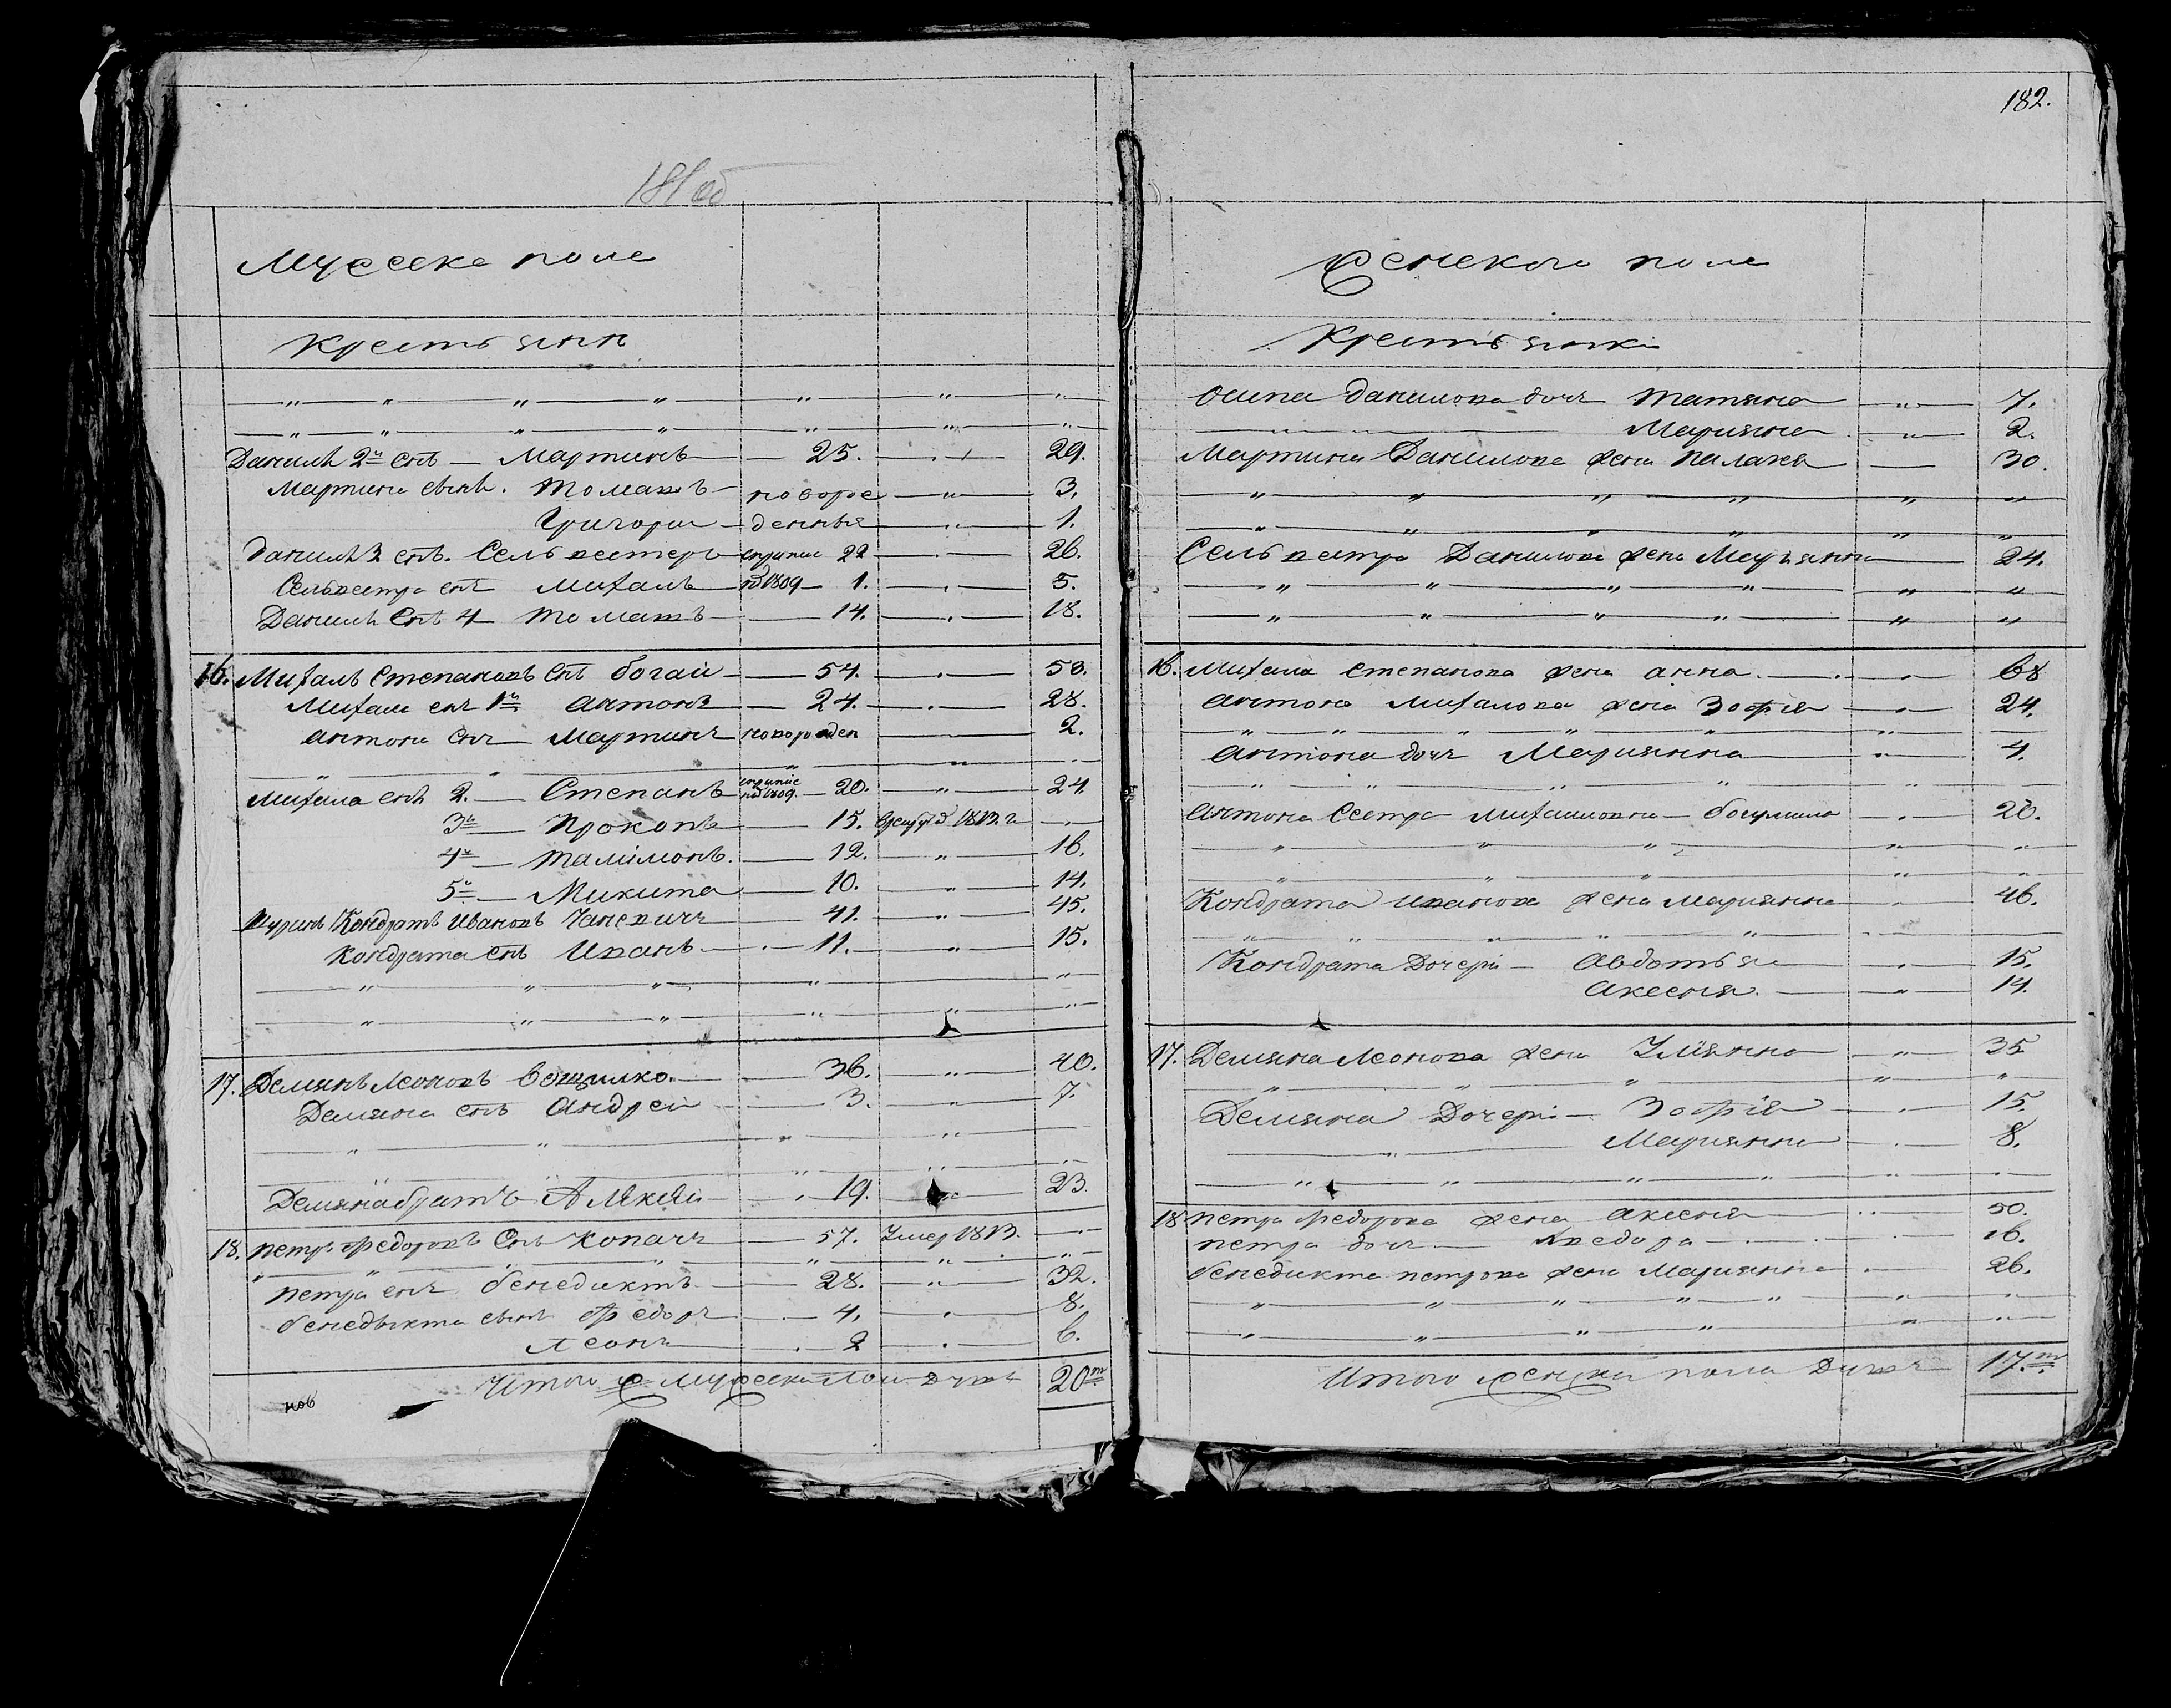 182.
181 об
Мужеска пола
Крестьяни
Данила 2й сынъ Мартинъ 25. 29.
Мартина сыны. Томашъ новорож 3.
Григори денныя 1.
Данилы 3 сынъ. Сельвестеръ скрипис 22 26.
Сельвестра сынъ Михалъ по 1809 1. 5.
Данила Сынъ 4 Томашъ 14. 18.
16. Михалъ Степановъ Сынъ богай 54. 58.
Михала сынъ 1й Антонъ 24. 28.
Антона Сынъ Мартинъ новорожден 2.
Михала сынъ 2. Степанъ 20. 24.
3й Прокопъ 15. 1813. г
4й Талимонъ. 12. 16.
5й Микита 10. 14.
Шуринъ Кондратъ Ивановъ Чаневичъ 41. 45.
Кондрата Сынъ Иванъ 11. 15.
17. Демянъ Леоновъ 36. 40.
Демяна сынъ Андрей 3. 7.
Демяна братъ Алякси 19. 23.
18. Петръ Федоровъ Сынъ Копачъ 57. Умер 1813.
Петра сынъ бенедиктъ 28. 32.
бенедыкта сыны Федоръ 4. 8.
Леонъ 2 6.
Итого Мужеска Пола Душъ 20ть
нов
Женскаго пола
Крестьянки
Осипа Данилова дочь Татяна 7.
Марияна 2.
Мартина Данилова жена Палажа 30.
Сельвестра Данилова жена Марьяна 24.
16. Михала Степанова жена Анна. 68
Антона Михалова жена Зофия 24.
Антона дочь Мариянна 4.
Антона Сестра Михаловна 20.
Кондрата Иванова жена Марианна 46.
Кондрата Дочери Авдотья 15.
Аксеня. 14.
17. Демяна Леонова жена Улiянна 35
Демяна Дочери Зофiя 15.
Мариянна 8.
18 Петра Федорова жена Аксеня 50.
Петра дочь Хведора 16.
бенедикта петрова жена Мариянна 26.
Итого женска пола Душъ 17.ть